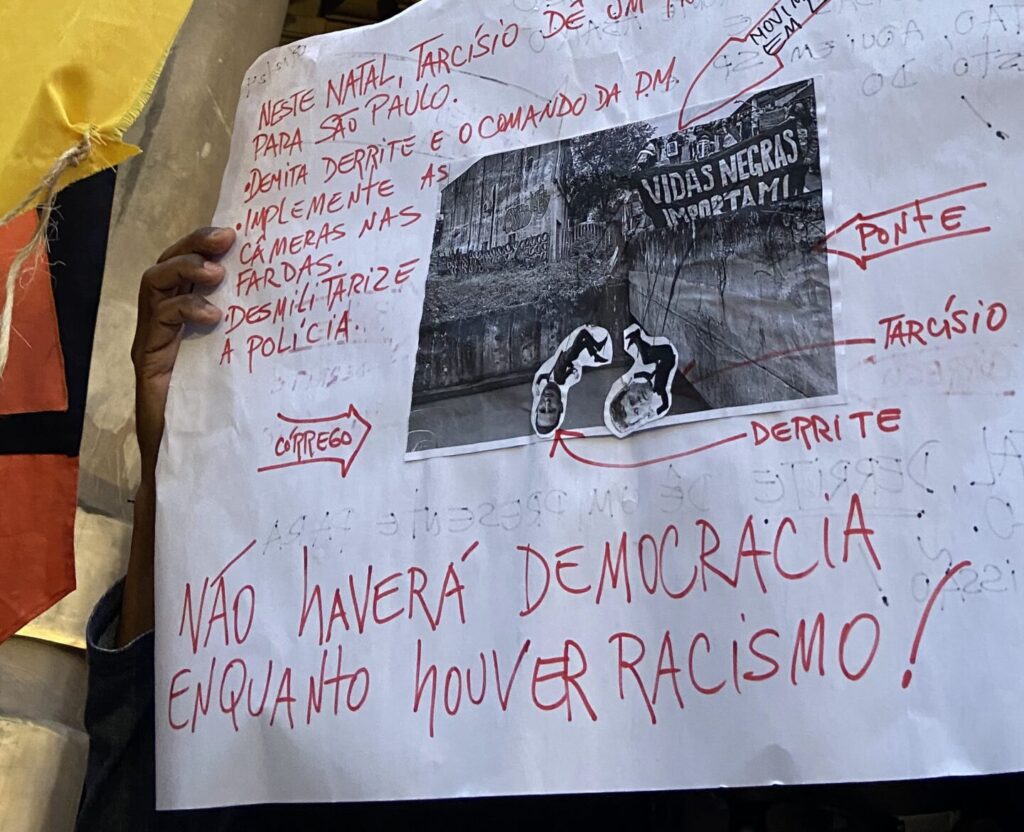 NESTE NATAL, TARCÍSIO DÊ UM
PARA SÃO PAULO.
• DEMITA DERRITE E O COMANDO DA P.M.
• IMPLEMENTE AS
CÂMERAS NAS
FARDAS.
• DESMILITARIZE
A POLÍCIA.
EM
VIDAS NEGRAS
IMPORTAM!
PONTE
TARCÍSIO
CÓRREGO
DERRITE
NÃO HAVERÁ DEMOCRACIA
ENQUANTO HOUVER RACISMO!